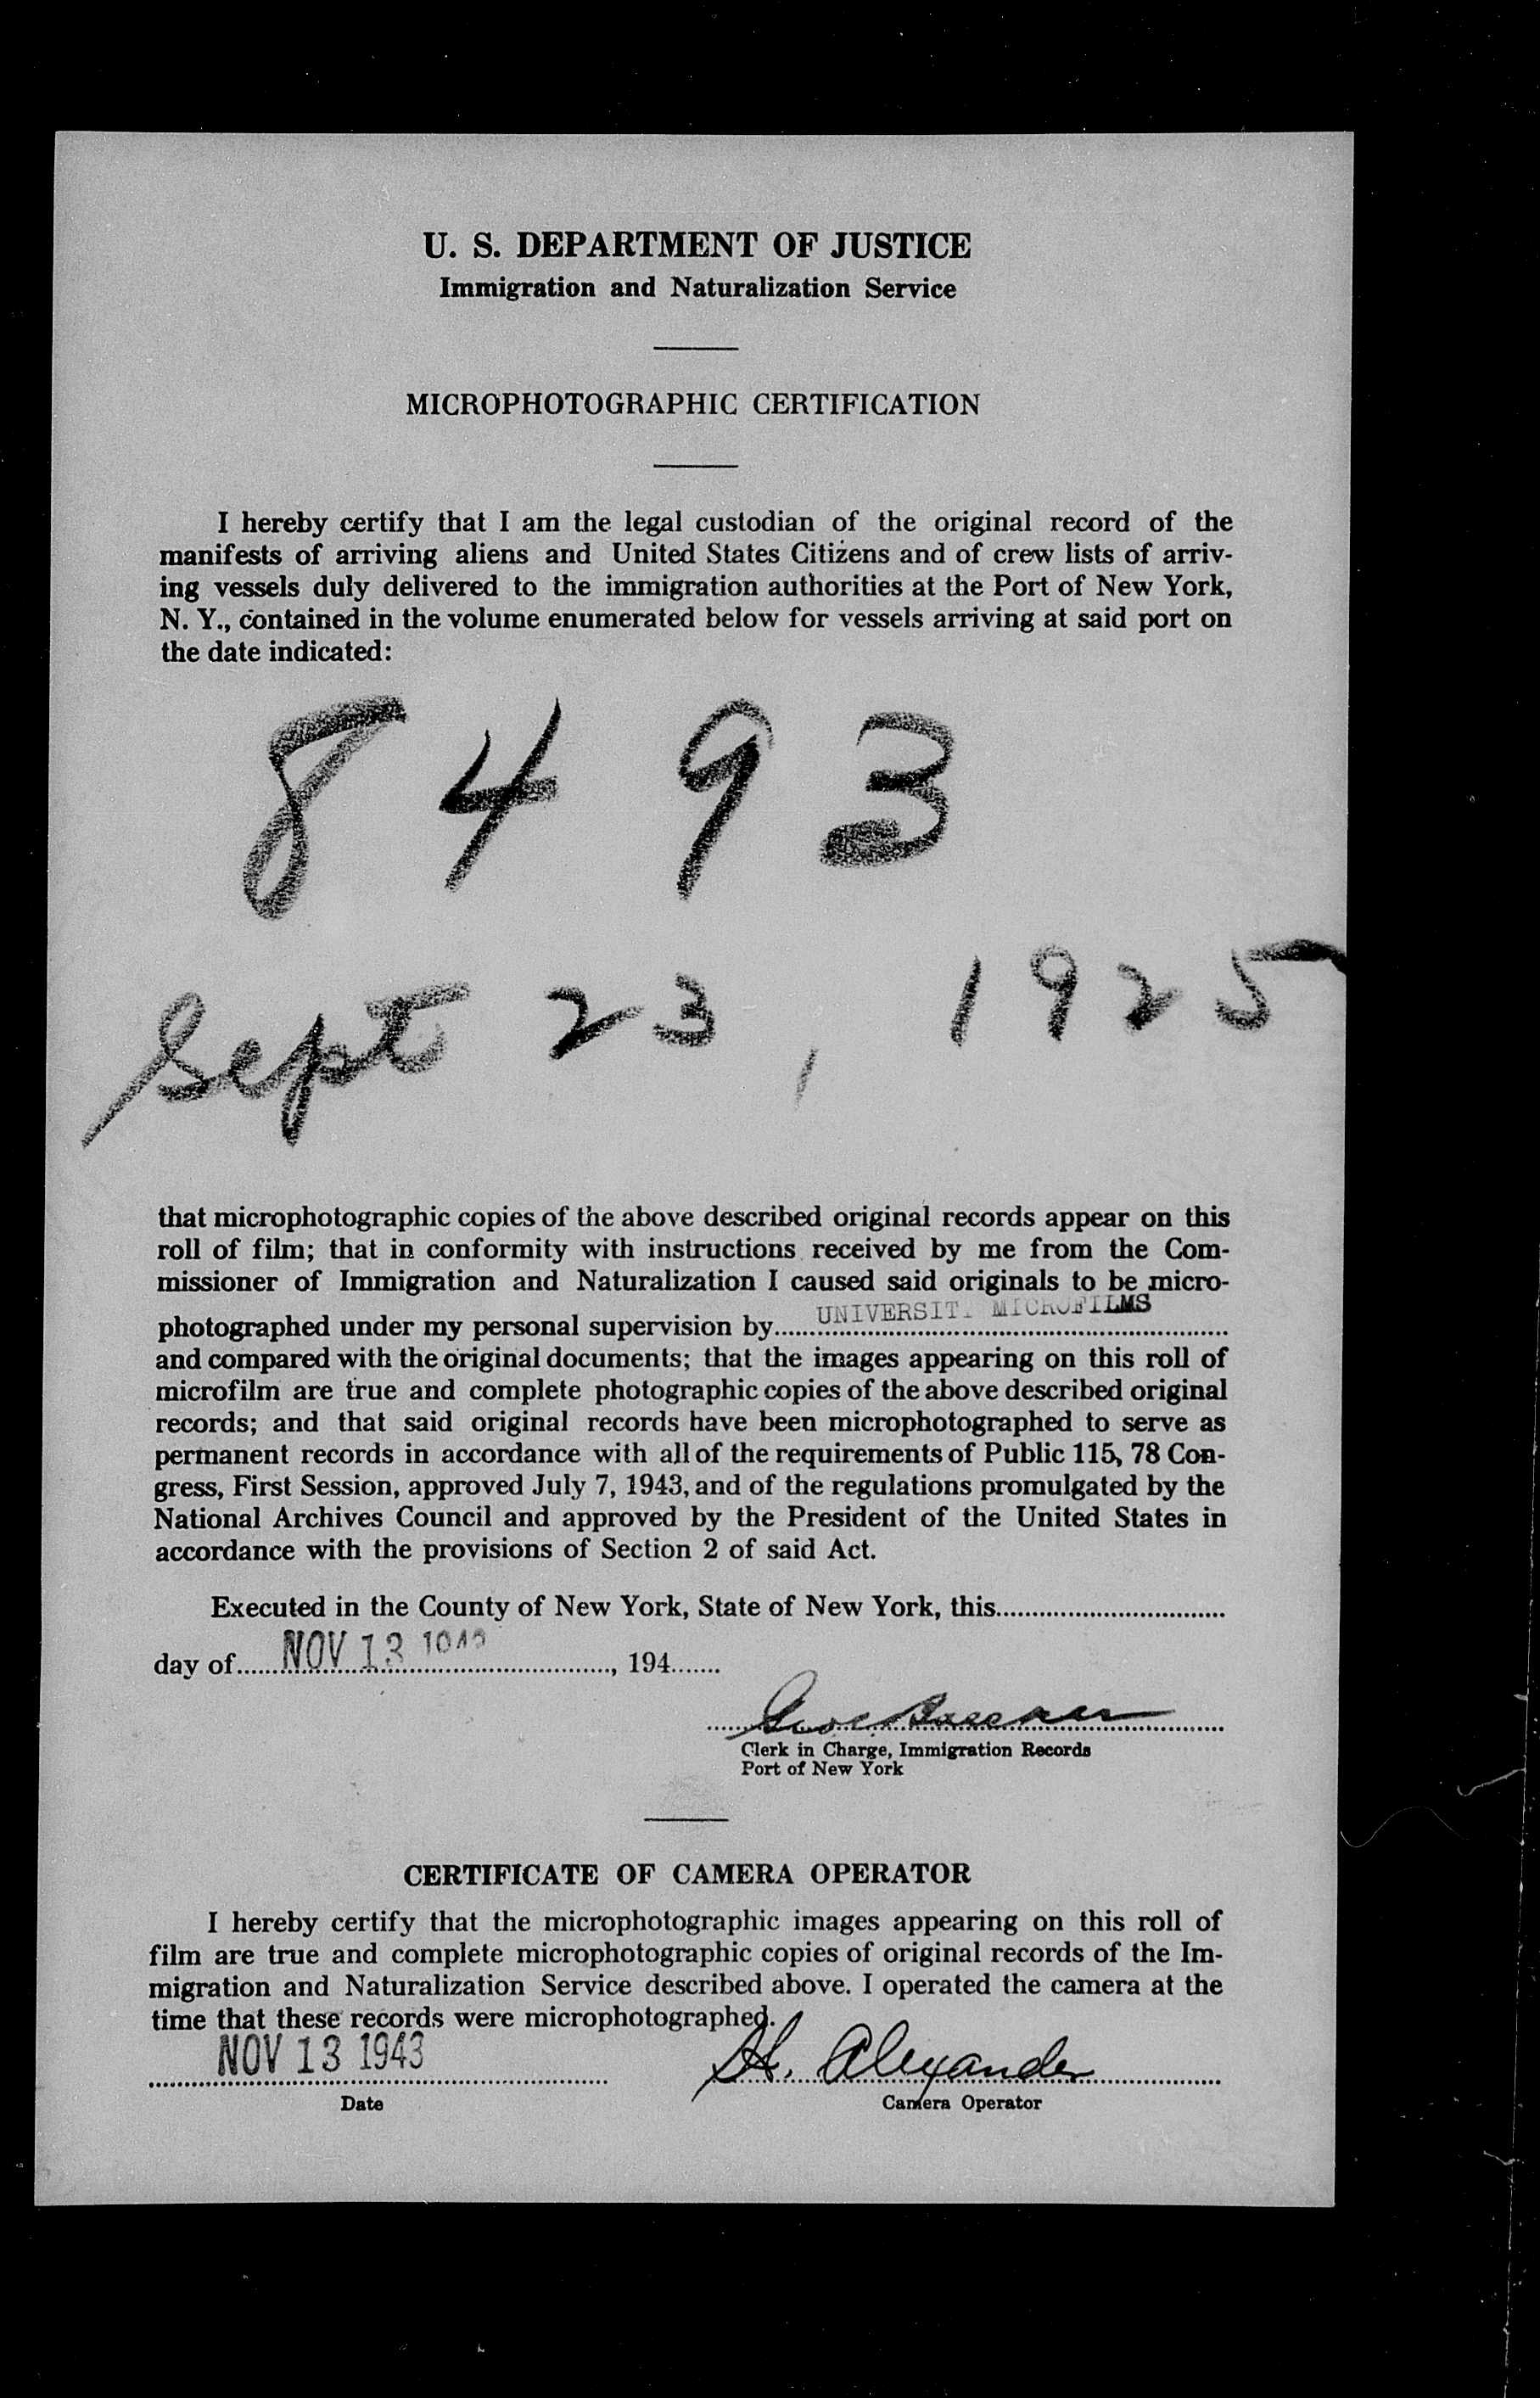 U. S. DEPARTMENT OF JUSTICE
Immigration and Naturalization Service
MICROPHOTOGRAPHIC CERTIFICATION
I hereby certify that I am the legal custodian of the original record of the
manifests of arriving aliens and United States Citizens and of crew lists of arriv-
ing vessels duly delivered to the immigration authorities at the Port of New York,
N. Y., contained in the volume enumerated below for vessels arriving at said port on
the date indicated:
8493
Sept 23, 1925
that microphotographic copies of the above described original records appear on this
roll of film; that in conformity with instructions received by me from the Com-
missioner of Immigration and Naturalization I caused said originals to be micro-
photographed under my personal supervision by UNIVERSIT. MICROFILMS
and compared with the original documents; that the images appearing on this roll of
microfilm are true and complete photographic copies of the above described original
records; and that said original records have been microphotographed to serve as
permanent records in accordance with all of the requirements of Public 115, 78 Con-
gress, First Session, approved July 7, 1943, and of the regulations promulgated by the
National Archives Council and approved by the President of the United States in
accordance with the provisions of Section 2 of said Act.
Executed in the County of New York, State of New York, this
day of NOV 13 1943, 194
Clerk in Charge, Immigration Records
Port of New York
CERTIFICATE OF CAMERA OPERATOR
I hereby certify that the microphotographic images appearing on this roll of
film are true and complete microphotographic copies of original records of the Im-
migration and Naturalization Service described above. I operated the camera at the
time that these records were microphotographed.
NOV 13 1943 H. Alexander
Date Camera Operator